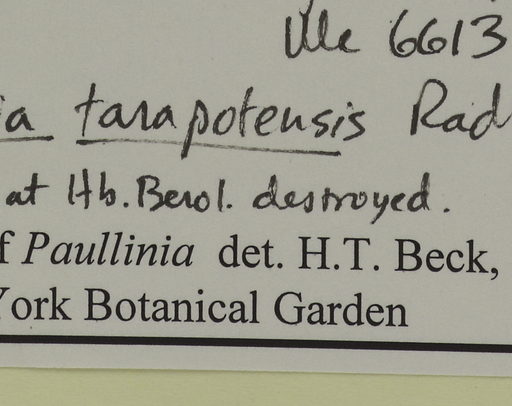 Ule 6613
a tarapotensis Rad
at Hb. Berol. destroyed.
f Paullinia det. H.T. Beck,
York Botanical Garden